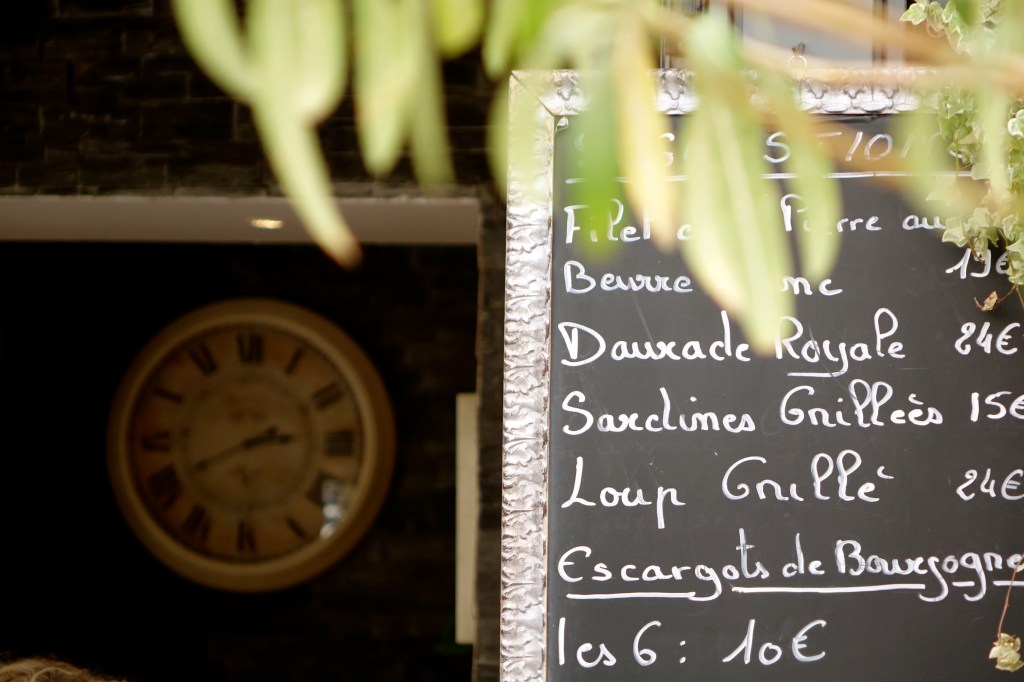 Filet Pierre au
Beurre 19€
Daurade Royale 24€
Sardines Grilleès 15€
Loup Grillé 24€
Escargots de Bourgogne
les 6 : 10€